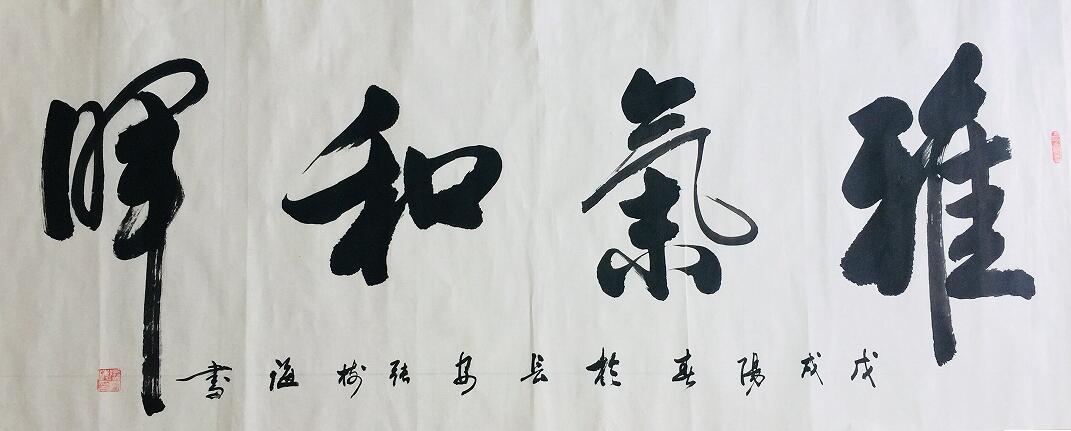 雅氣和暉
戊戌陽春於長安張樹海書